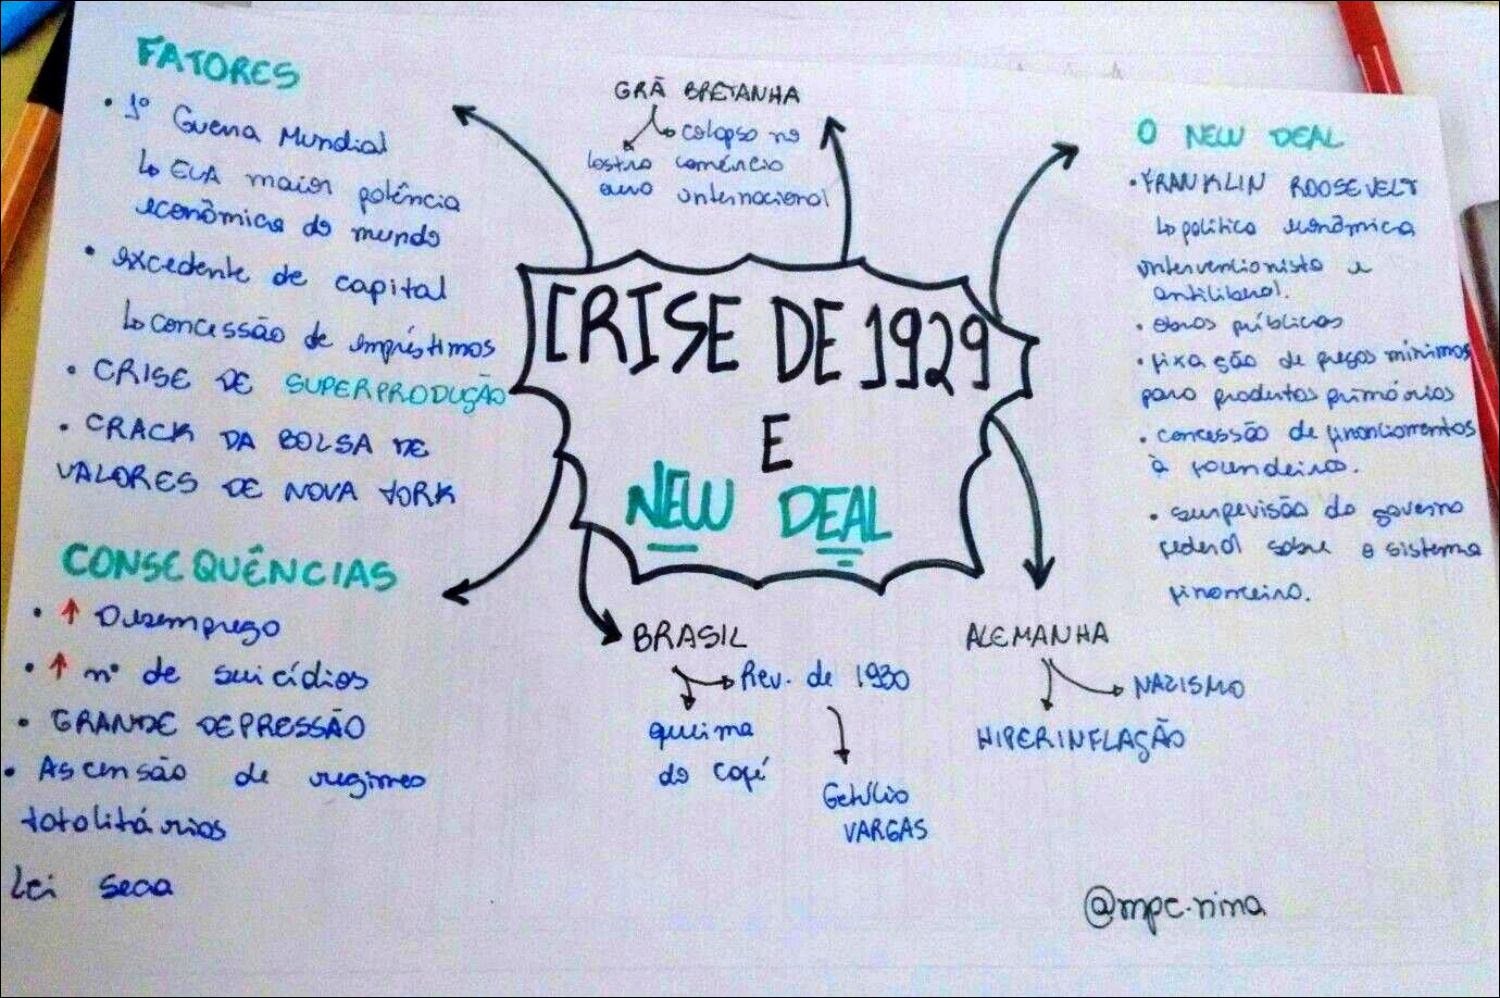 FATORES
• 1º Guerra Mundial
↳ EUA maior potência
econômica do mundo
• excedente de capital
↳ concessão de empréstimos
• CRISE DE SUPERPRODUÇÃO
• CRACK DA BOLSA DE
VALORES DE NOVA YORK
CONSEQUÊNCIAS
• ↑ Desemprego
• ↑ nº de suicídios
• GRANDE DEPRESSÃO
• Ascensão de regimes
totalitários
Lei seca
GRÃ BRETANHA
↳ colapso no
lastro comércio
ouro internacional
CRISE DE 1929
E
NEW DEAL
BRASIL
Rev. de 1930
queima
do café
Getúlio
VARGAS
ALEMANHA
NAZISMO
HIPERINFLAÇÃO
O NEW DEAL
• FRANKLIN ROOSEVELT
↳ política econômica
intervencionista e
antiliberal.
• obras públicas
• fixação de preços mínimos
para produtos primários
• concessão de financiamentos
à fazendeiros.
• supervisão do governo
federal sobre o sistema
financeiro.
@mpc.nina